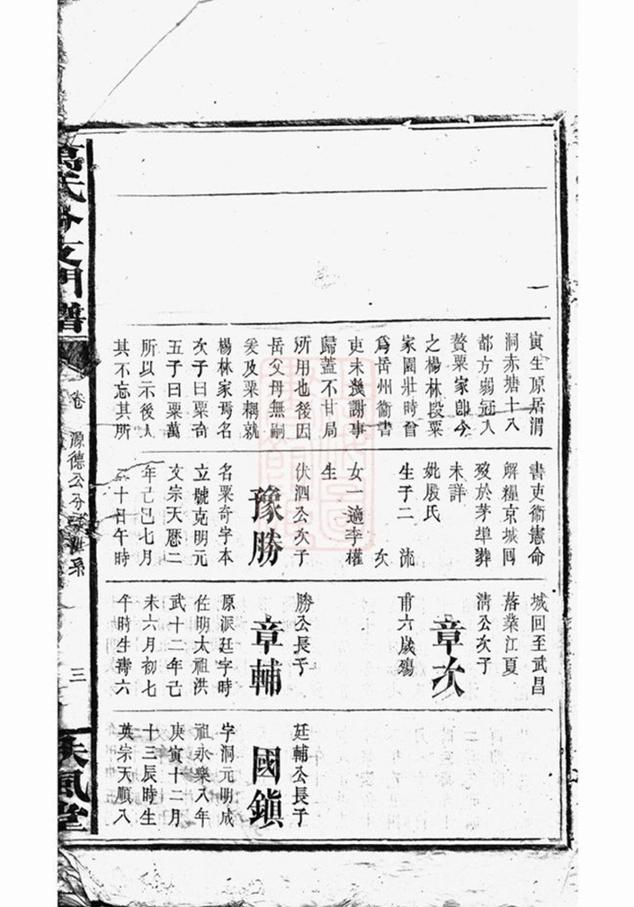 寅生原居渭
洞赤塘十八
都方弱冠入
贅粟家即今
之楊林段粟
家園壯時曾
為岳州衞書
吏未幾謝事
歸蓋不甘局
所用也後因
岳父母無嗣
爰及粟耦就
楊林家焉名
次子曰粟奇
五子曰粟萬
所以示後人
其不忘其所
書吏衞憲命
解糧京城回
歿於茅埠葬
未詳
妣殷氏
生子二 流
次
女一適李權
生
伏泗公次子
豫勝
名粟奇字本
立號克明元
文宗天厯二
年己巳七月
十日午時
城回至武昌
落業江夏
清公次子
章次
甫六歲殤
勝公長子
章輔
原派廷字時
佐明太祖洪
武十二年己
未六月初七
午時生壽六
廷輔公長子
國鎮
字洞元明成
祖永樂八年
庚寅十二月
十三辰時生
英宗天順八
萬氏分支開譜
卷 源德公分
三
扶風堂